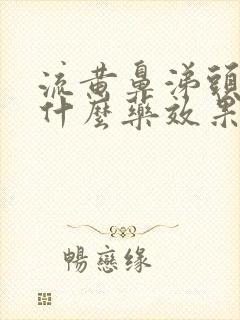 流黄鼻涕頭
什麼藥效果
暢戀缘